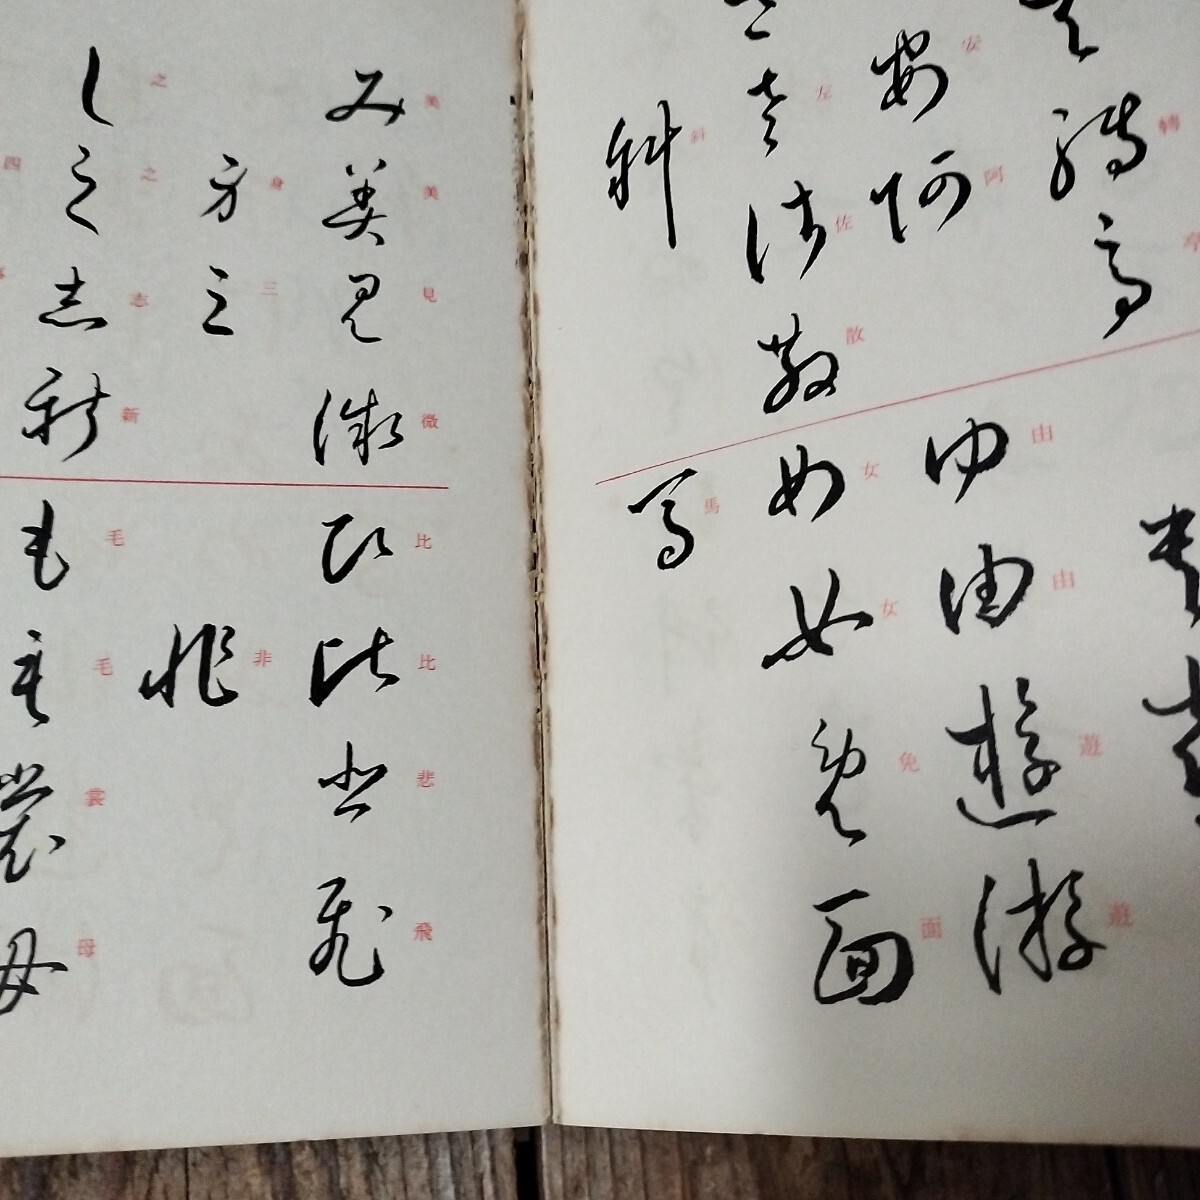 轉
亭
安
阿
左
佐
散
斜
由
由
遊
遊
女
女
免
面
馬
美
美
見
微
身
三
之
之
志
新
四
比
比
悲
飛
非
毛
毛
裳
母